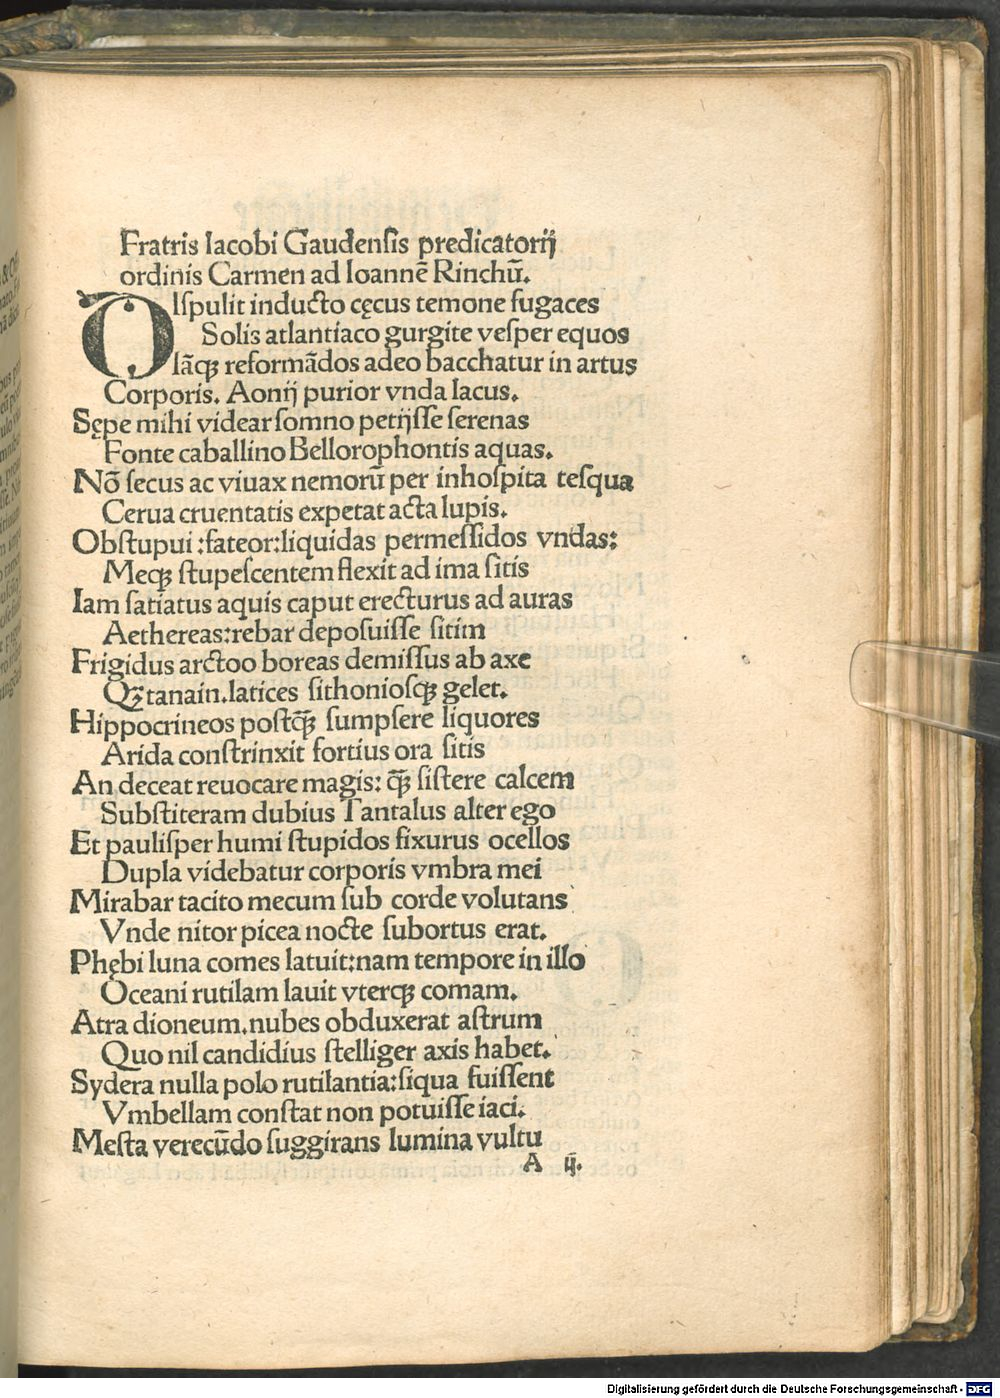 Fratris Iacobi Gaudenſis predicatorij
ordinis Carmen ad Ioannē Rinchū.
DIſpulit inducto cęcus temone fugaces
Solis atlantiaco gurgite veſper equos
Iāqꝫ reformādos adeo bacchatur in artus
Corporis. Aonij purior vnda lacus.
Sępe mihi videar ſomno petijſſe ſerenas
Fonte caballino Bellorophontis aquas.
Nō ſecus ac viuax nemorū per inhoſpita teſqua
Cerua cruentatis expetat acta lupis.
Obſtupui :fateor:liquidas permeſſidos vndas:
Meqꝫ ſtupeſcentem flexit ad ima ſitis
Iam ſatiatus aquis caput erecturus ad auras
Aethereas:rebar depoſuiſſe ſitim
Frigidus arctoo boreas demiſſus ab axe
Qꝫ tanain.latices ſithonioſqꝫ gelet.
Hippocrineos poſtqꝫ̄ ſumpſere liquores
Arida conſtrinxit fortius ora ſitis
An deceat reuocare magis: qꝫ̄ ſiſtere calcem
Subſtiteram dubius Tantalus alter ego
Et pauliſper humi ſtupidos fixurus ocellos
Dupla videbatur corporis vmbra mei
Mirabar tacito mecum ſub corde volutans
Vnde nitor picea nocte ſubortus erat.
Phębi luna comes latuit:nam tempore in illo
Oceani rutilam lauit vterqꝫ comam.
Atra dioneum.nubes obduxerat aſtrum
Quo nil candidius ſtelliger axis habet.
Sydera nulla polo rutilantia:ſiqua fuiſſent
Vmbellam conſtat non potuiſſe iaci.
Meſta verecūdo ſuggirans lumina vultu
A ij.
Digitalisierung gefördert durch die Deutsche Forschungsgemeinschaft - DFG